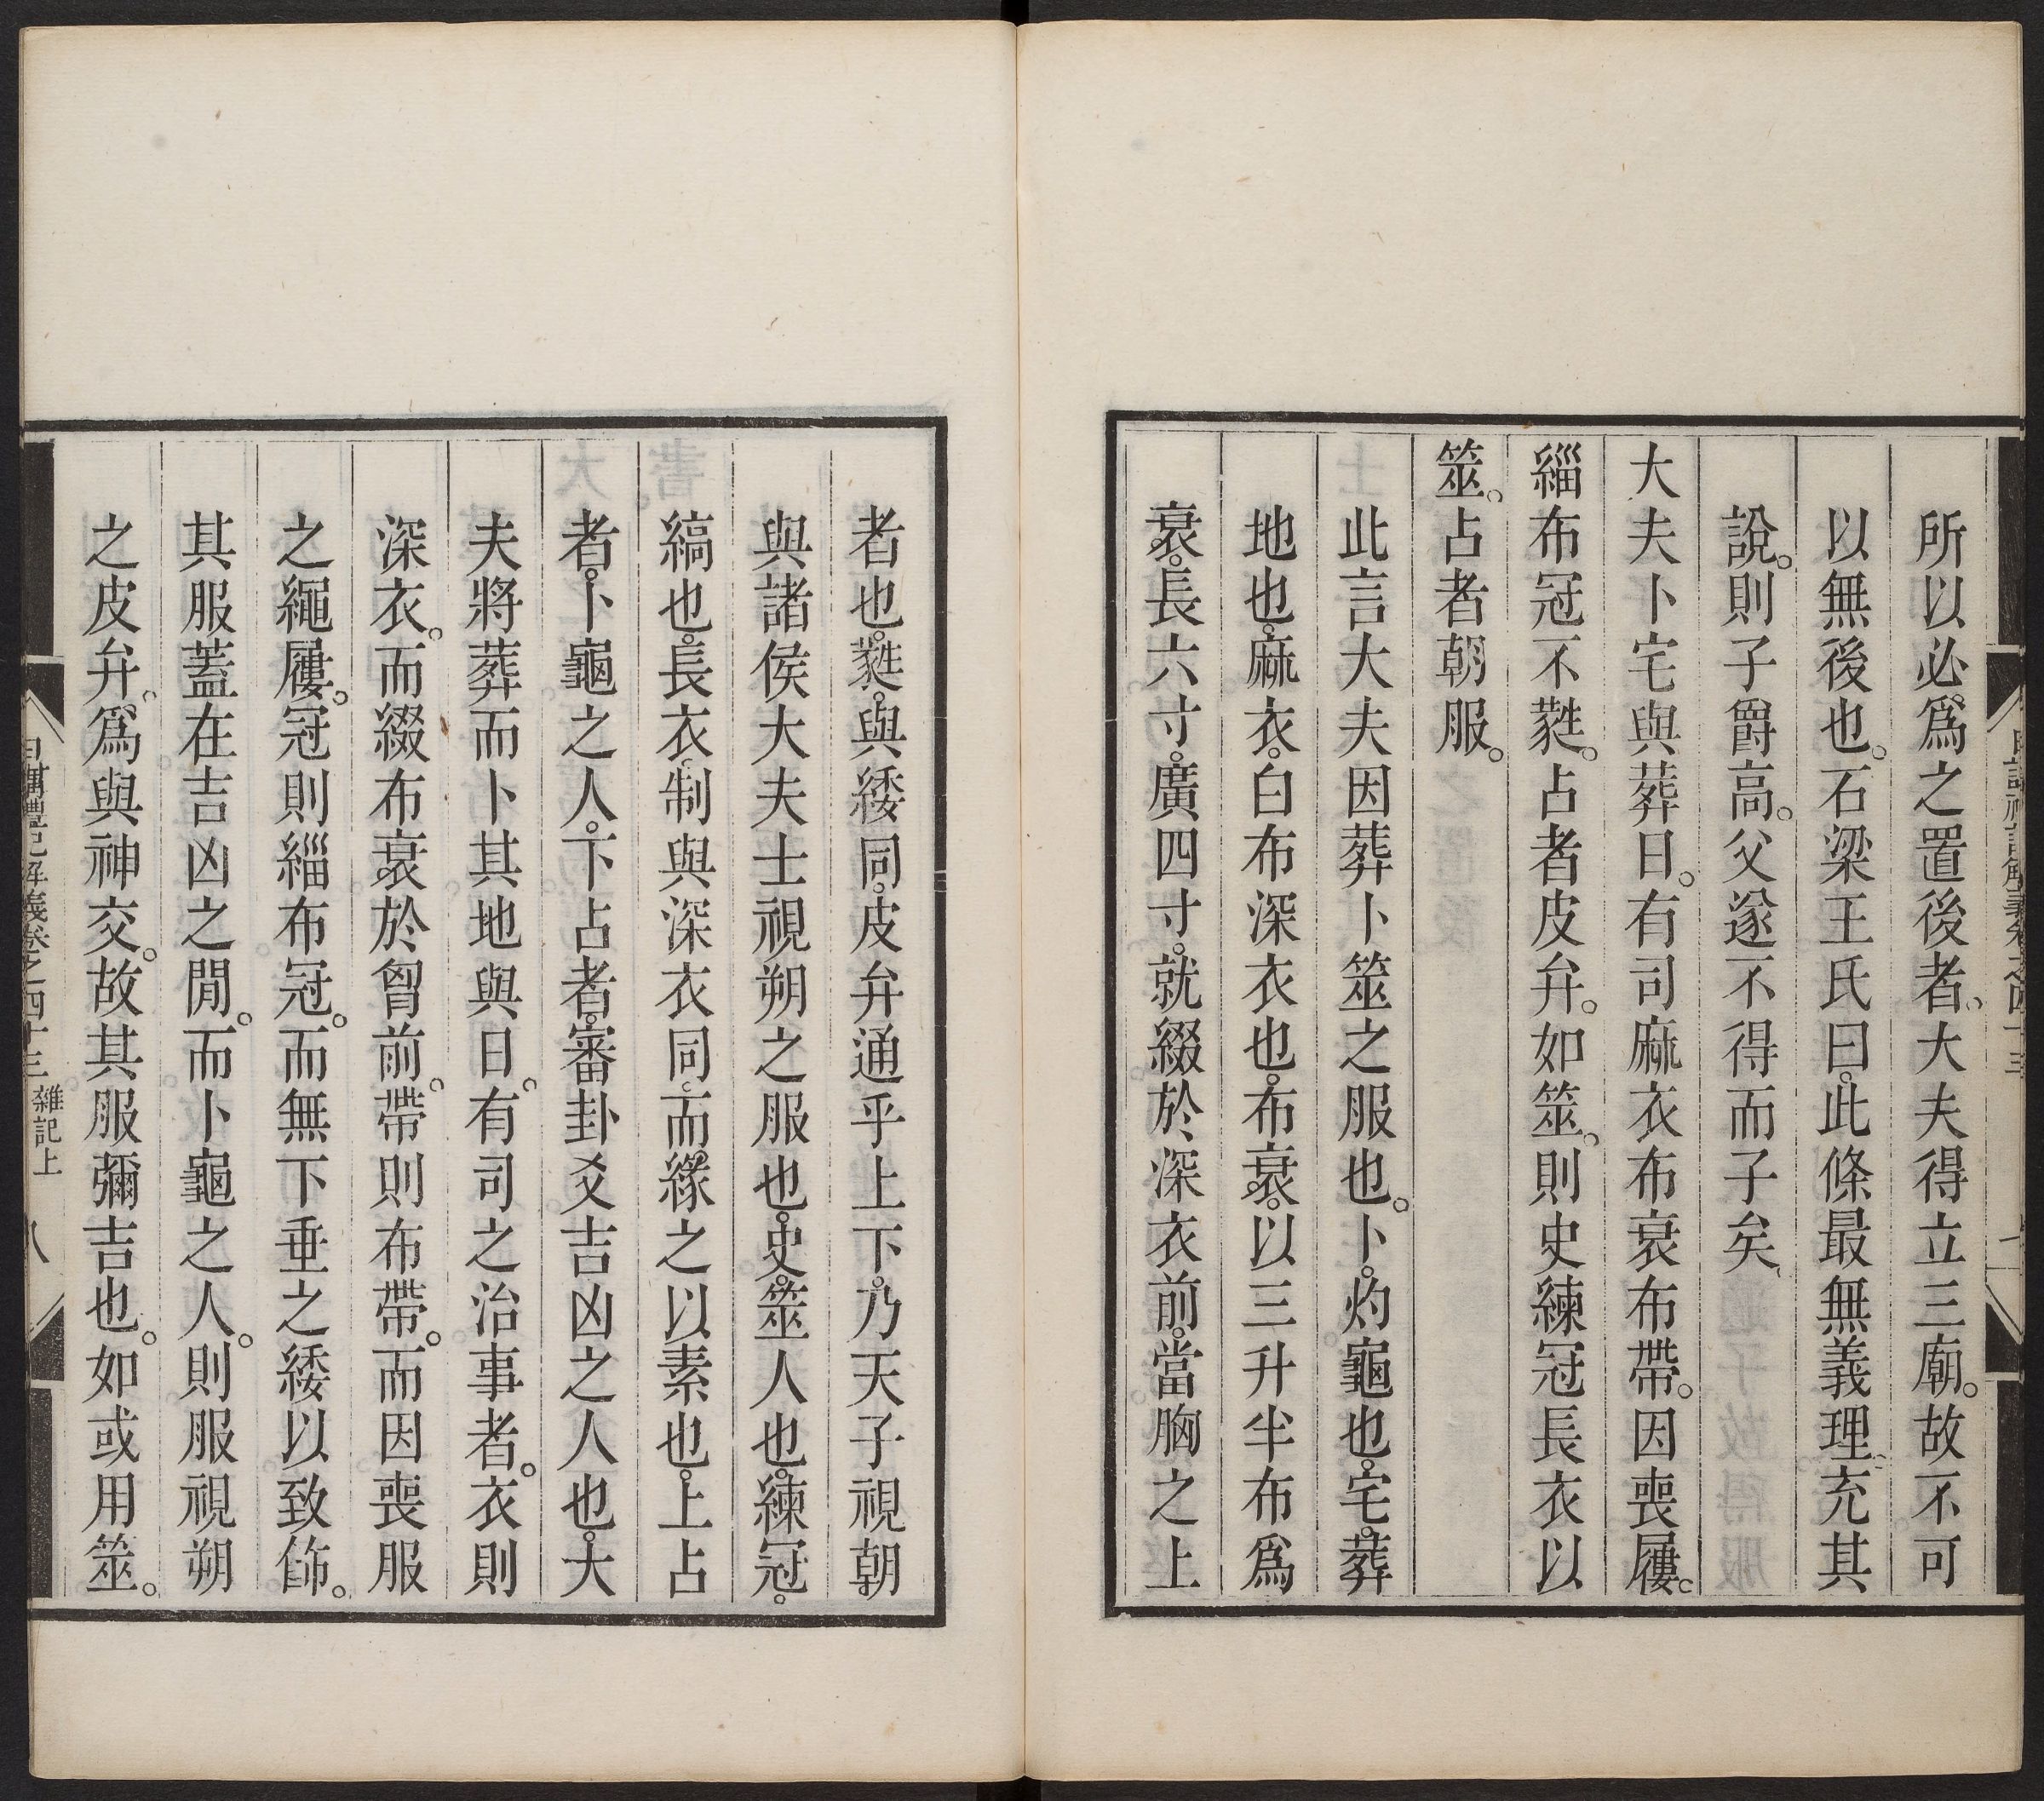 所以必爲之置後者大夫得立三廟故不可
以無後也石梁王氏曰此條最無義理充其
說則子爵高父遂不得而子矣
大夫卜宅與葬日有司麻衣布衰布帶因喪屨
緇布冠不蕤占者皮弁如筮則史練冠長衣以
筮占者朝服
此言大夫因葬卜筮之服也卜灼龜也宅葬
地也麻衣白布深衣也布衰以三升半布爲
衰長六寸廣四寸就綴於深衣前當胸之上
者也蕤與緌同皮弁通乎上下乃天子視朝
與諸侯大夫士視朔之服也史筮人也練冠
縞也長衣制與深衣同而緣之以素也上占
者卜龜之人下占者審卦爻吉凶之人也大
夫將葬而卜其地與日有司之治事者衣則
深衣而綴布衰於胷前帶則布帶而因喪服
之繩屨冠則緇布冠而無下垂之緌以致飾
其服蓋在吉凶之閒而卜龜之人則服視朔
之皮弁爲與神交故其服彌吉也如或用筮
日講禮記解義卷之四十三 雜記上 八